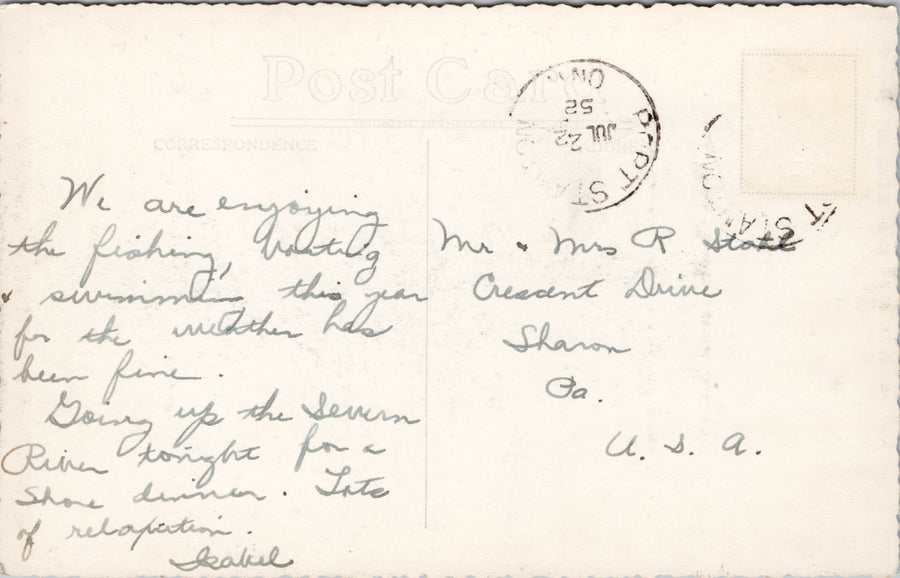 Post Card
CORRESPONDENCE
PORT STAN
JUL 22
52
ONT
We are enjoying
the fishing, boating
& swimming this year
for the weather has
been fine.
Going up the Severn
River tonight for a
shore dinner. Lots
of relaxation.
Isabel
Mr & Mrs R
Crescent Drive
Sharon
Pa.
U.S.A.